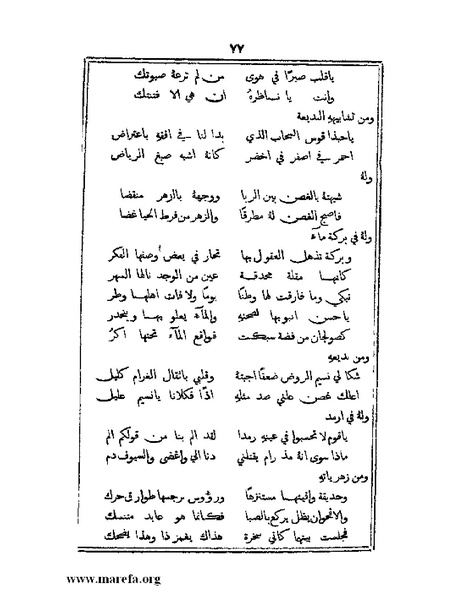 ٧٧
ياقلب صبرًا في هوى من لم ترعهُ صبوتك
وانت يا ناظرهُ ان هي الا فتنتك
ومن تشابيههِ البديعة
ياحبذا قوس السحاب الذي بدا لنا في افقهِ باعتراض
احمر في اصفر في اخضر كانهُ اشبه صبغ الرياض
ولهُ
شبهتهُ بالغصن بين الربا ووجههُ بالزهر منقضا
فاصبح الغصن لهُ مطرقًا والزهر من فرط الحيا غضا
ولهُ في بركة مآء
وبركة تذهل العقول بها تحار في بعض وصفها الفكر
كانها مقلة محدقة عين من الوجد نالها السهر
تبكي وما فارقت لها وطنًا يومًا ولا فات اهلها وطر
ياحسن انبوبها لصحتهِ والمآء يعلو بها وينحدر
كصولجان من فضة سبكت فواقع المآء تحتها اكرُ
ومن بديعهِ
شكا لي نسيم الروض ضعفًا اجبتهُ وقلبي باثقال الغرام كليل
اعلك غصن علني صد مثلهِ اذًا فكلانا يانسيم عليل
ولهُ في ارمد
ياقوم لا تحسبوا في عينهِ رمدا لقد الم بنا من قولكم الم
ماذا سوى انهُ مذ رام يقتلني دنا الي واغضى والسيوف دم
ومن زهرياتهِ
وحديقة وافيتها مستنزهًا ورؤوس نرجسها طوارق في حرك
والاقحوان يظل يركع بالصبا فكانما هو عابد متنسك
فجلست بينها كاني سخرة هذاك يغمز ذا وهذا يضحك
www.marefa.org